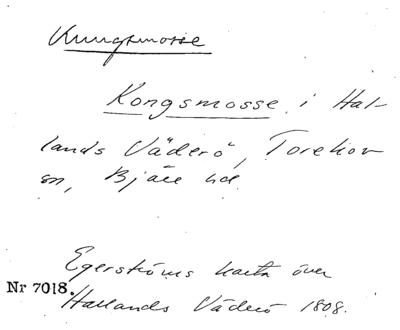 Kungsmosse
Kongsmosse i Hal-
lands Väderö, Torekov
sn, Bjäre hd.
Egerströms karta över
Nr 7018. Hallands Väderö 1808.